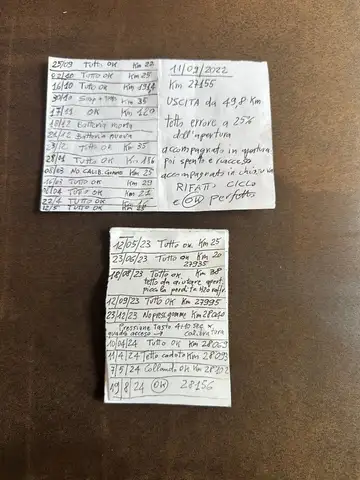 25/09 Tutti OK Km 22
02/10 Tutto OK Km 25
16/10 Tutto OK Km
30/10 Km 35
17/11 OK Km
18/12 Batteria morta
Batteria nuova
Tutto OK Km 35
28/01 Tutti OK Km 116
05/03 NO. CALIB. GOMME Km 25
16/03 Tutto OK Km 29
Tutto OK Km 21
Tutto OK Km 16
12/5 Tutto OK Km
11/09/2022
Km 27155
USCITA da 49,8 Km
tetto errore a 25%
dell'apertura
accompagnato in apertura
poi spento e riacceso
accompagnato in chiusura
RIFATTO CICLO
e OK perfetto
12/05/23 Tutto OK Km 25
23/06/23 Tutto OK Km 20
27935
18/08/23 Tutto OK Km 38
tetto da aiutare apert.
piccola perdita H2O raffr.
12/09/23 Tutto OK Km 27995
23/12/23 No press. gomme Km 28040
Pressione Tasto 4÷10 sec
quadro acceso → calibratura
10/04/24 Tutto OK Km 28069
11/4/24 Tetto caduto Km 28093
7/5/24 Collaudo OK Km 28102
19/8/24 OK 28156